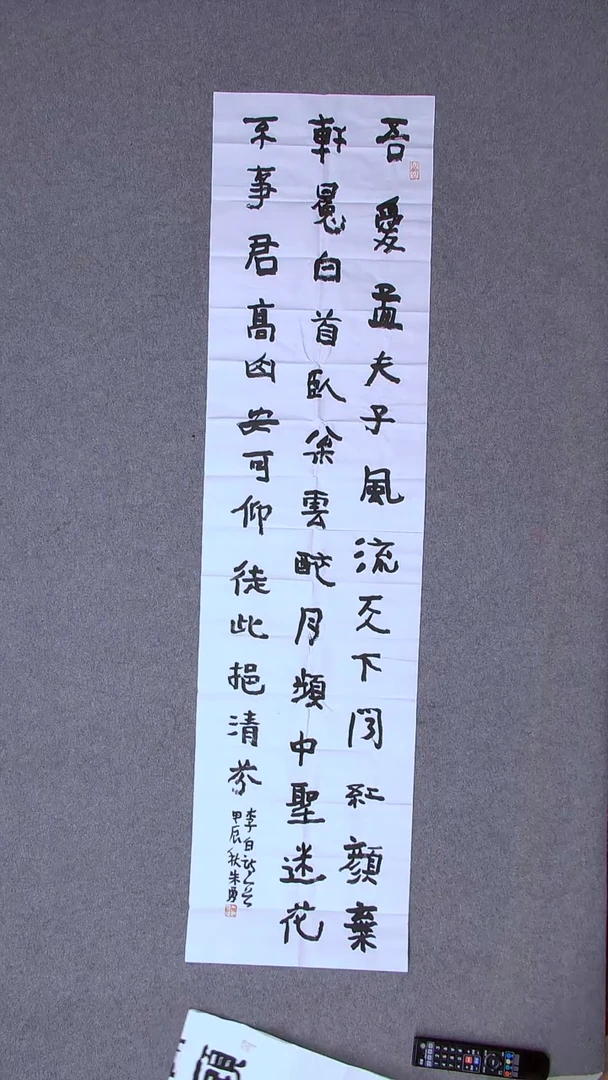 吾愛孟夫子風流天下闻紅顔棄
軒冕白首臥枀雲酔月頻中聖迷花
不事君高山安可仰徒此挹清芬
李白诗
甲辰秋朱勇